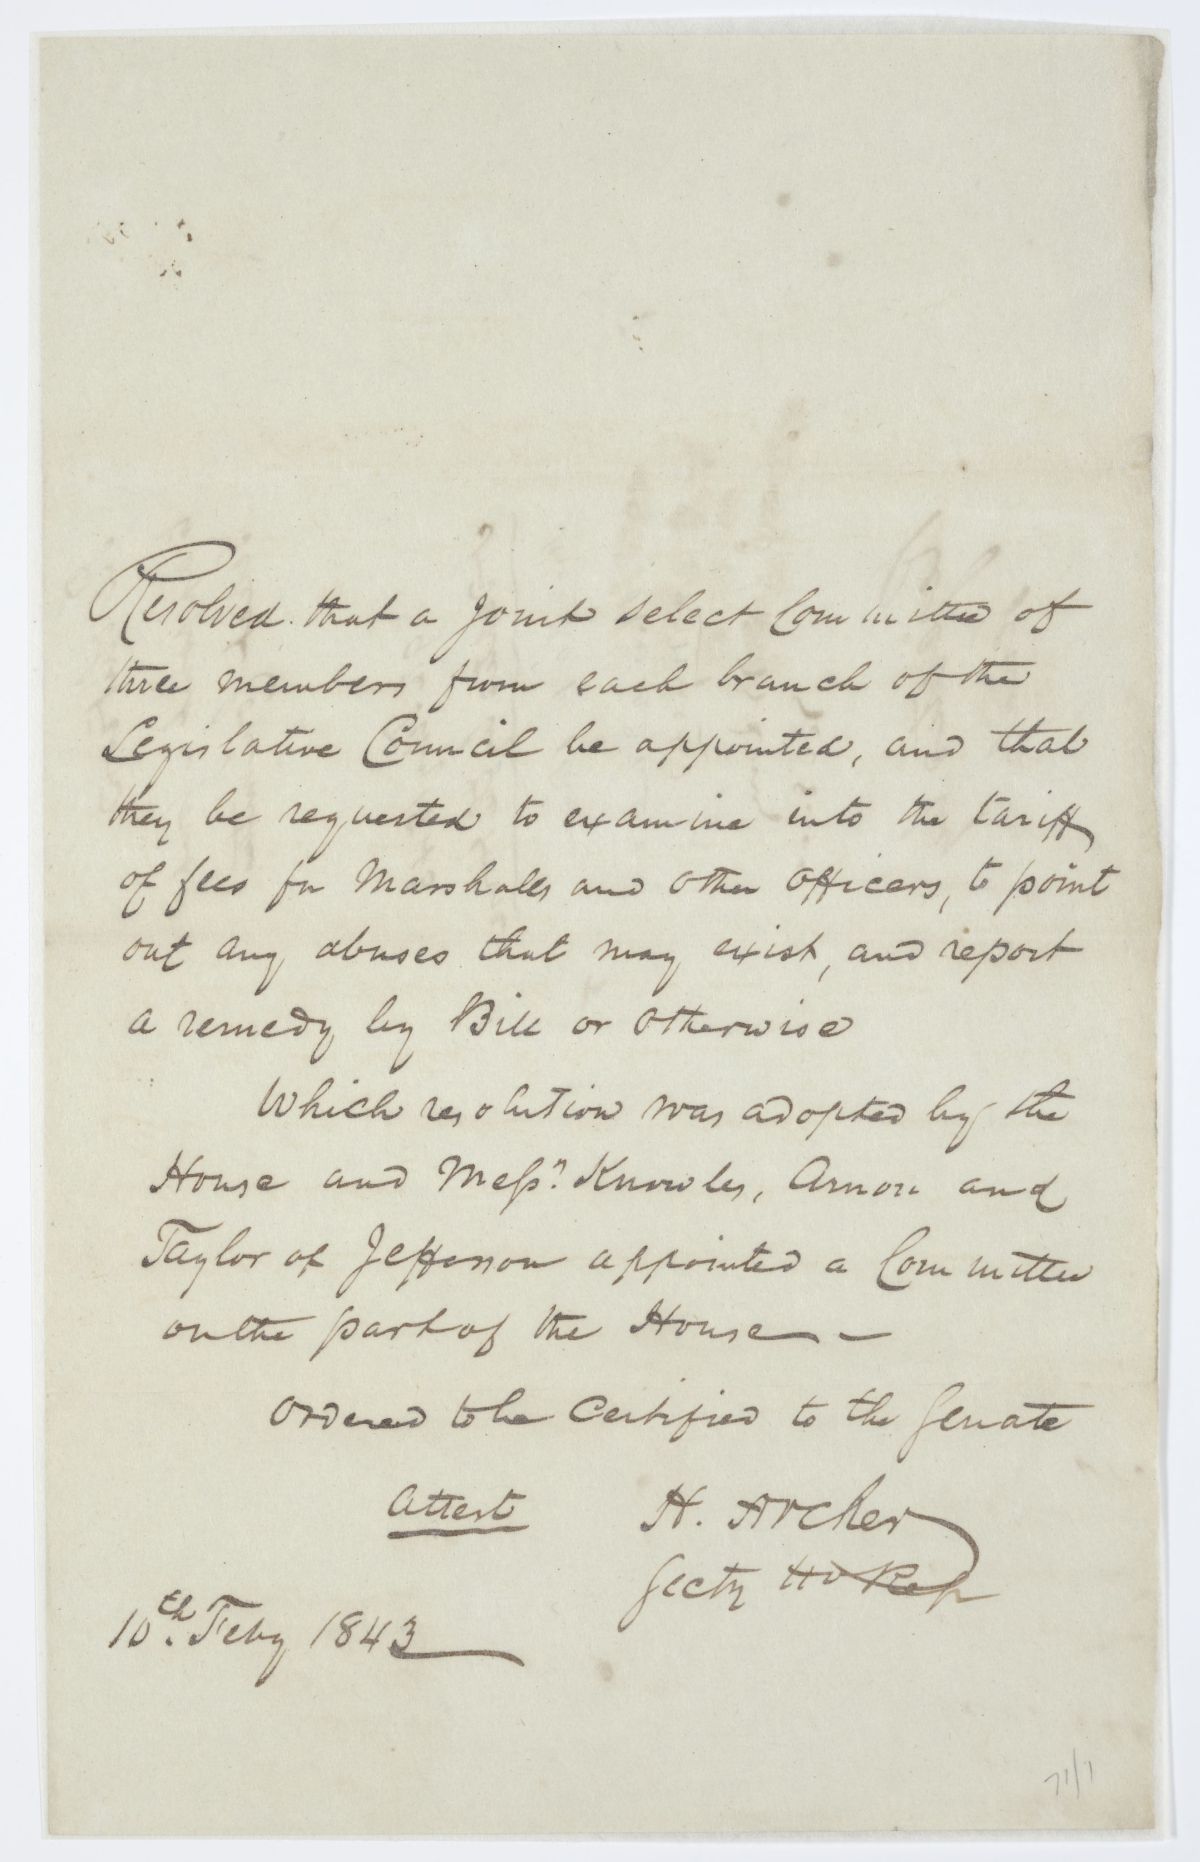 Resolved that a Joint select Committee of
three members from each branch of the
Legislative Council be appointed, and that
they be requested to examine into the tariff
of fees for Marshalls and other officers, to point
out any abuses that may exist, and report
a remedy by Bill or otherwise
Which resolution was adopted by the
House and Messrs. Knowles, and
Taylor of Jefferson appointed a Committee
on the part of the House —
Ordered to be Certified to the Senate
Attest H. Archer
Secty Ho Rep
10th. Feby 1843
71/1